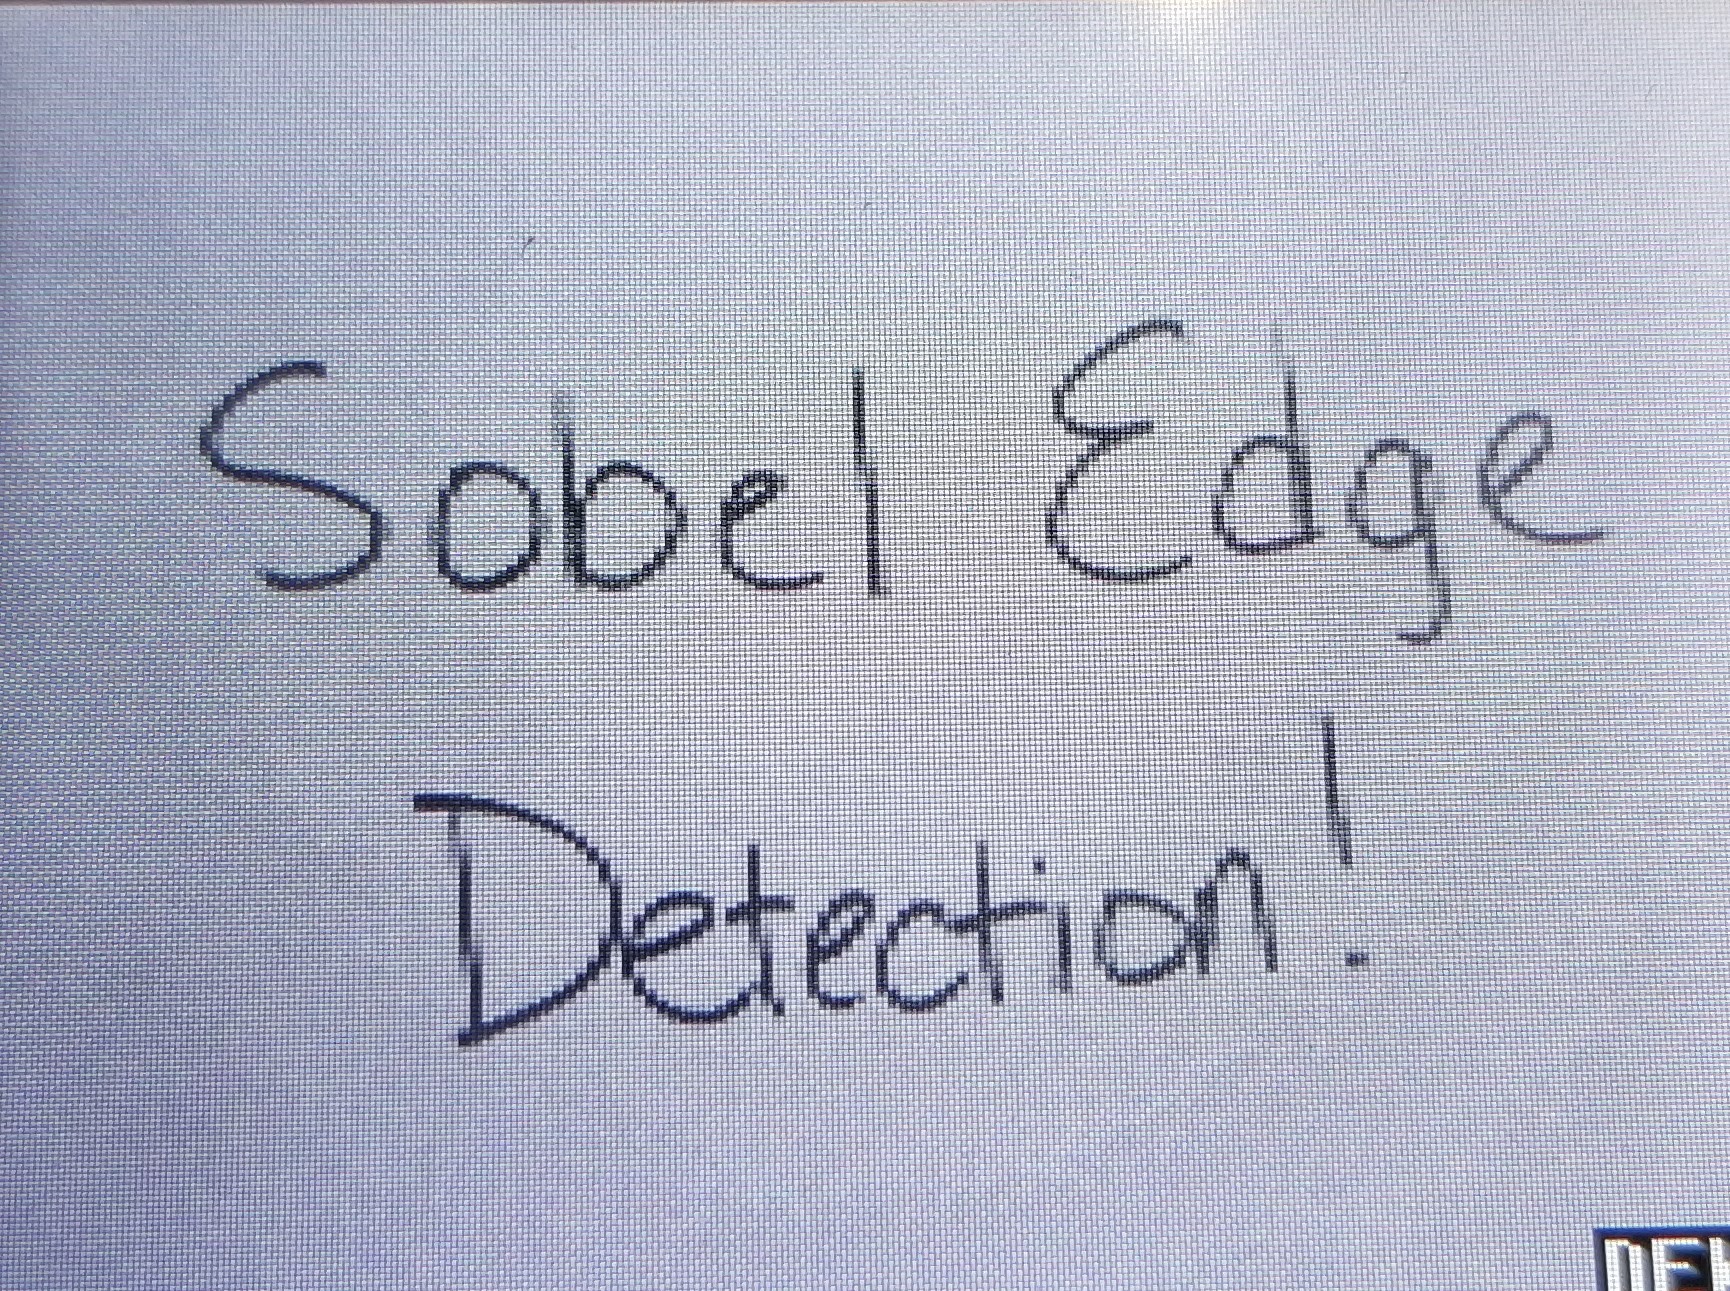 Sobel Edge
Detection!